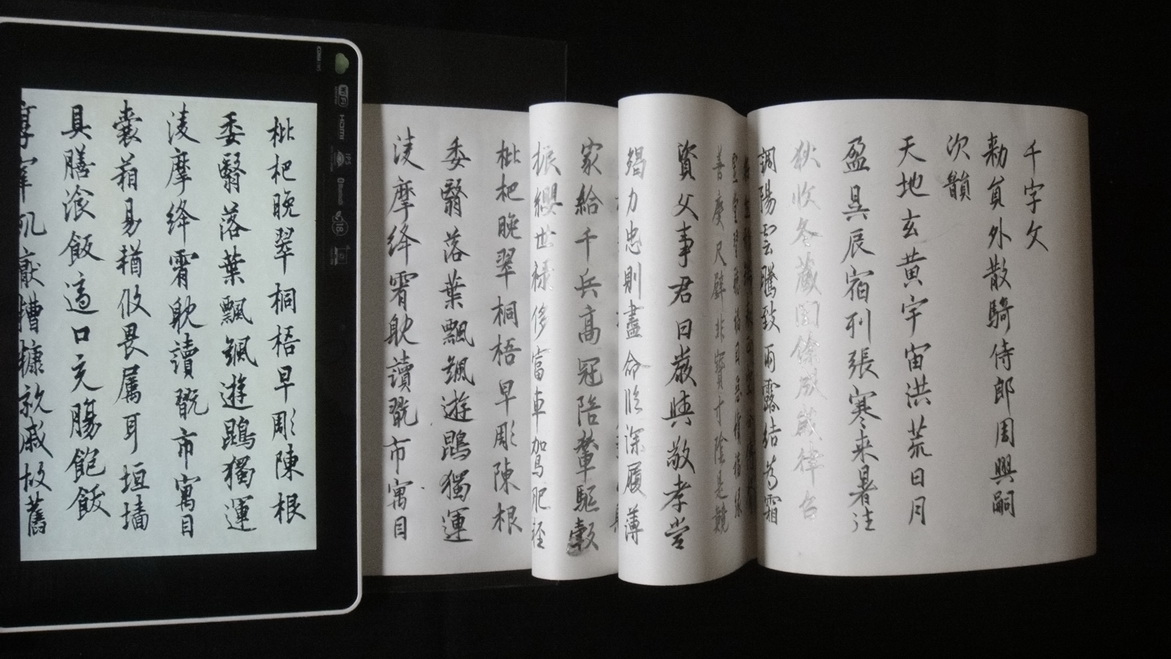 千字文
勅員外散騎侍郎周興嗣
次韻
天地玄黄宇宙洪荒日月
盈昃辰宿列張寒来暑往
秋收冬藏閏餘成歲律召
調陽雲騰致雨露結為霜
善慶尺璧非寶寸陰是競
資父事君曰嚴與敬孝當
竭力忠則盡命臨深履薄
家給千兵高冠陪輦驅轂
振纓世祿侈富車駕肥輕
枇杷晚翠桐梧早彫陳根
委翳落葉飄颻遊鵾獨運
淩摩絳霄耽讀翫市寓目
HDMI
枇杷晚翠桐梧早彫陳根
委翳落葉飄颻遊鵾獨運
淩摩絳霄耽讀翫市寓目
囊箱易輶攸畏屬耳垣墻
具膳飡飯適口充腸飽飫
宰飢厭糟糠親戚故舊